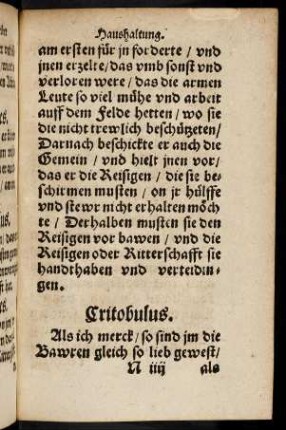 Haushaltung.
am ersten für jn forderte / vnd
jnen erzelte / das vmb sonst vnd
verloren were / das die armen
Leute so viel mühe vnd arbeit
auff dem Felde hetten / wo sie
die nicht trewlich beschützeten /
Darnach beschickte er auch die
Gemein / vnd hielt jnen vor /
das er die Reisigen / die sie be-
schirmen musten / on jr hülffe
vnd stewr nicht erhalten möch
te / Derhalben musten sie den
Reisigen vor bawen / vnd die
Reisigen oder Ritterschafft sie
handthaben vnd verteidin-
gen.
Critobulus.
Als ich merck / so sind jm die
Bawren gleich so lieb gewest /
N iiij als